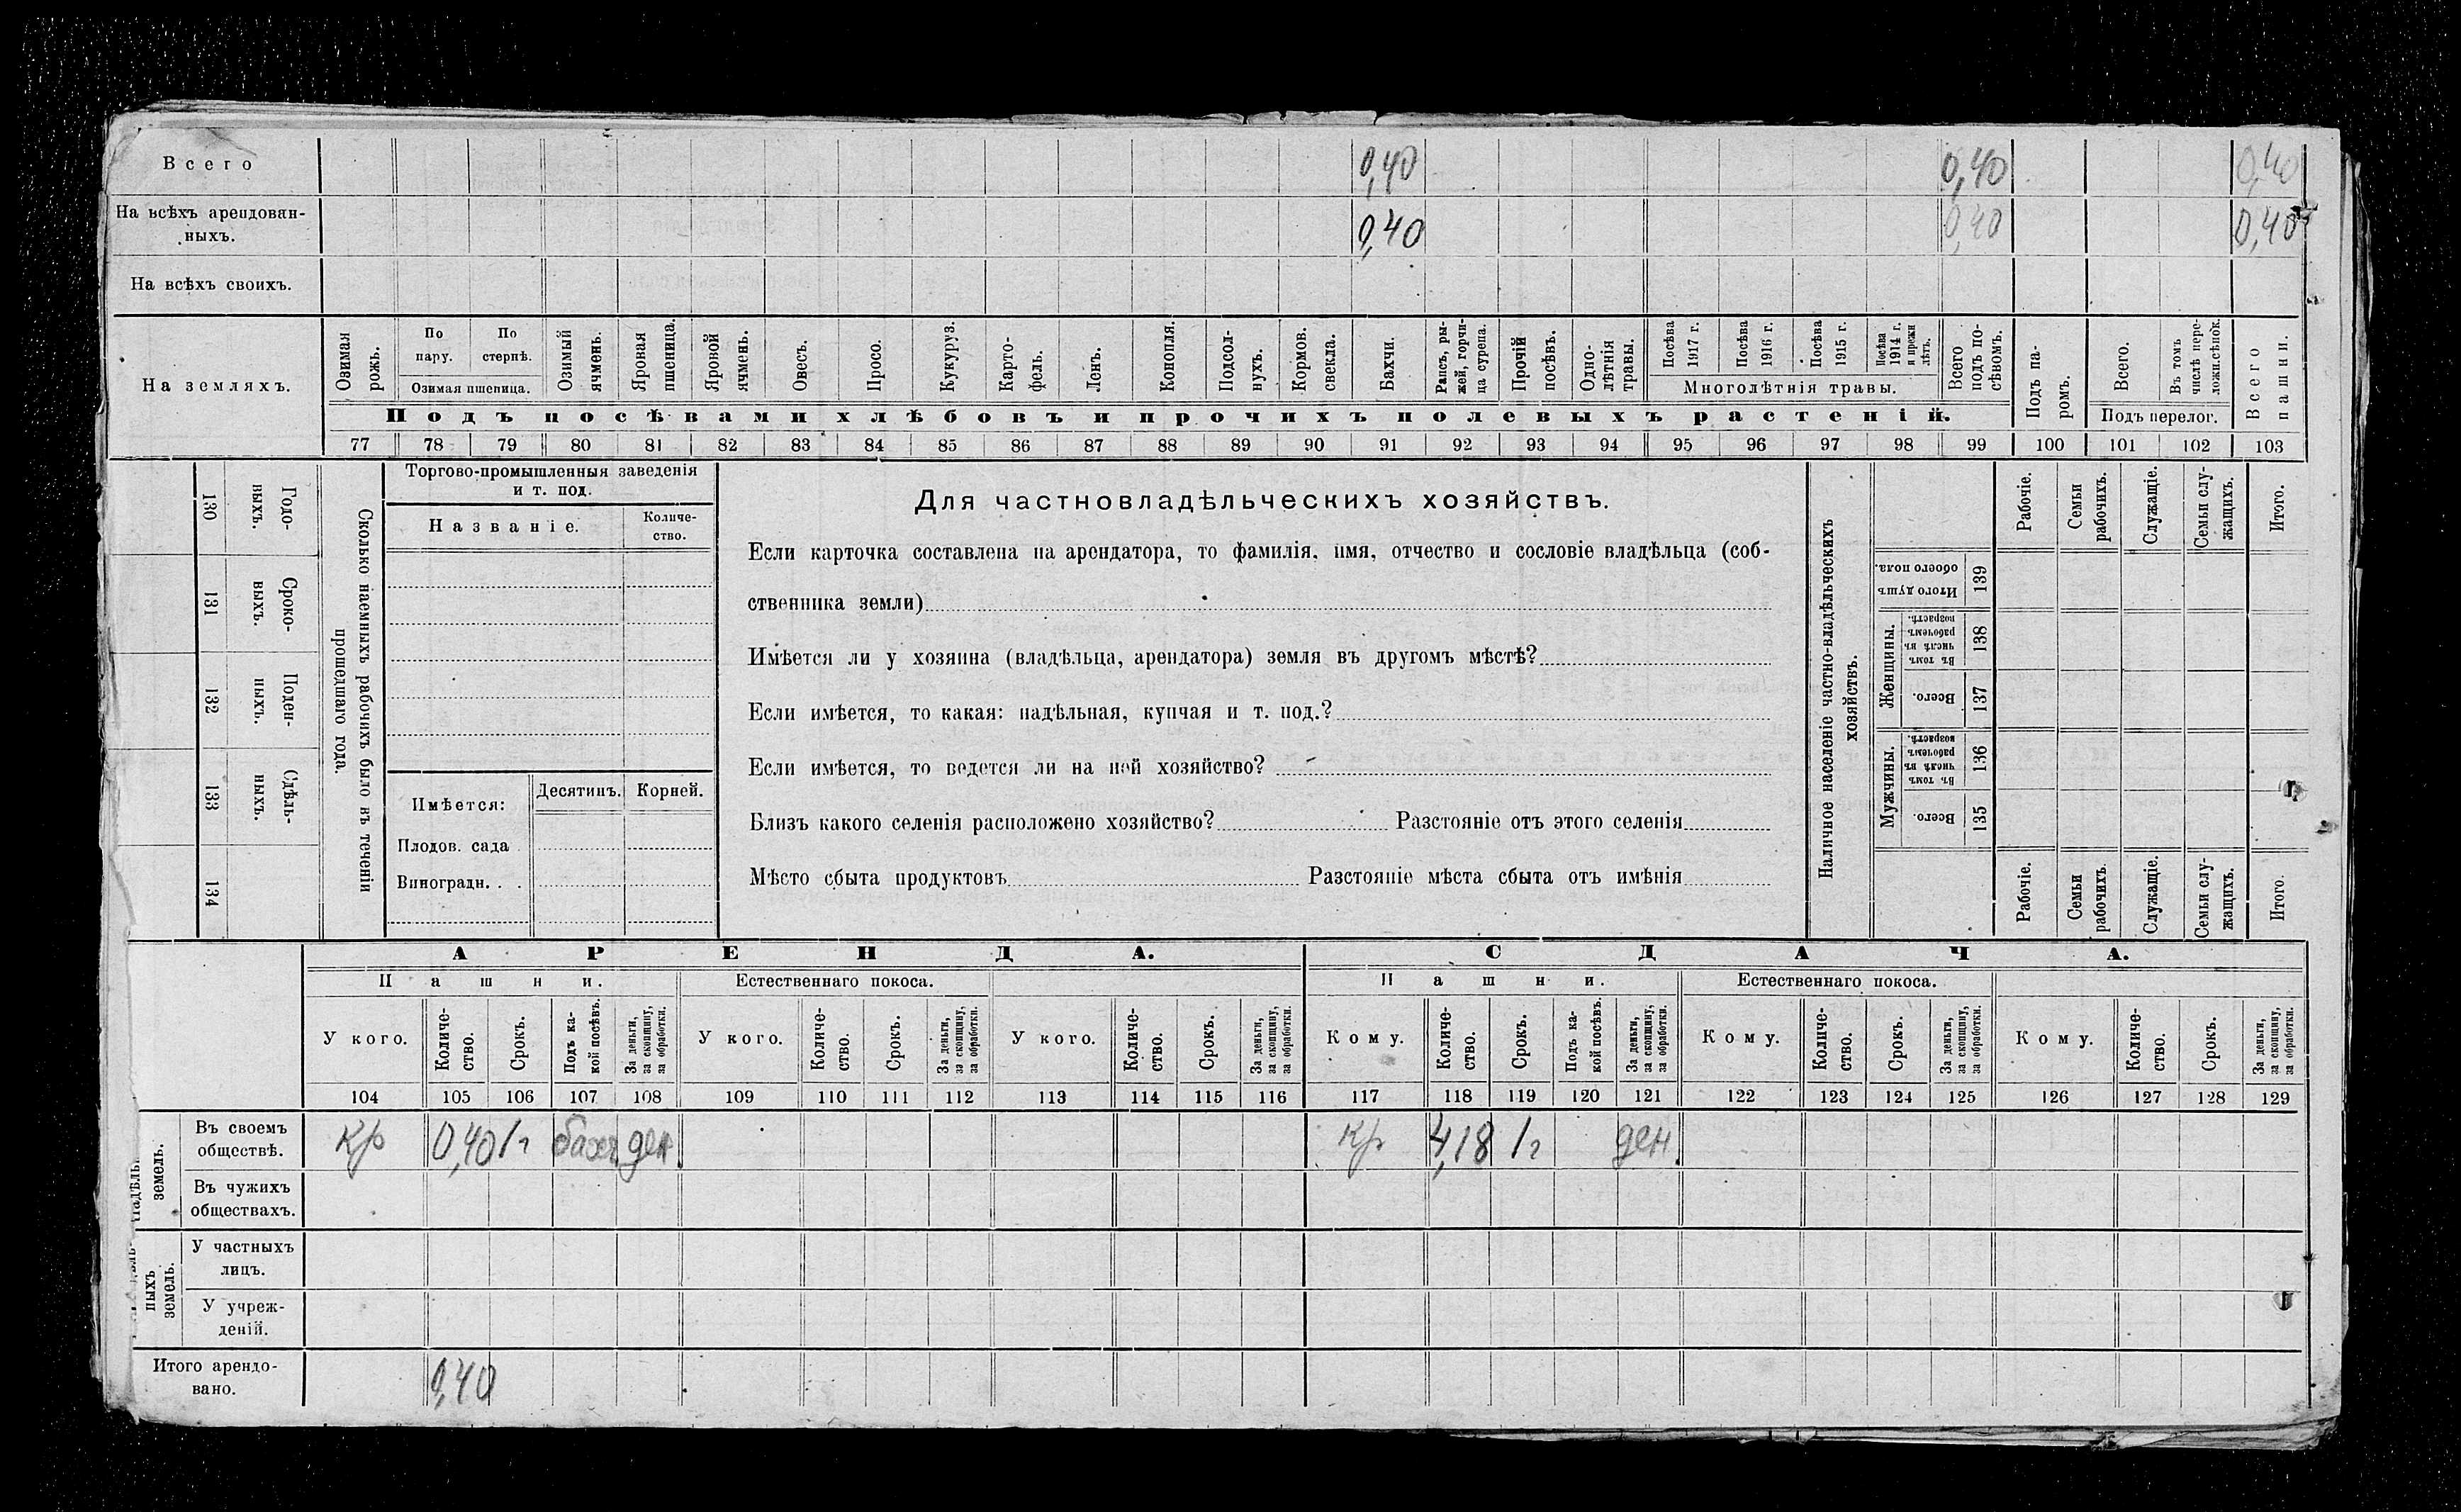 Всего 0,40 0,40 0,40
На всѣхъ арендован-
ныхъ. 0,40 0,40 0,40
На всѣхъ своихъ.
На земляхъ.
Озимая рожь.
По пару.
По стернѣ.
Озимая пшеница.
Озимый ячмень.
Яровая пшеница.
Яровой ячмень.
Овесъ.
Просо.
Кукуруз.
Карто-
фель.
Ленъ.
Конопля.
Подсол-
нухъ.
Кормов.
свекла.
Бахчи.
Рапсъ, ры-
жей, горчи-
ца сурепа.
Прочій
посѣвъ.
Одно-
лѣтнія
травы.
Посѣва
1917 г.
Посѣва
1916 г.
Посѣва
1915 г.
Посѣва
1914 г.
и прежн
лѣтъ.
Многолѣтнія травы.
Всего
подъ по-
сѣвомъ.
Подъ па-
ромъ.
Всего.
Въ томъ
числѣ пере-
ложн.сѣнок.
Подъ перелог.
Всего
пашни.
Подъ посѣвами хлѣбовъ и прочихъ полевыхъ растеній.
77 78 79 80 81 82 83 84 85 86 87 88 89 90 91 92 93 94 95 96 97 98 99 100 101 102 103
Сколько наемныхъ рабочихъ было въ теченіи
прошедшаго года.
Годо-
выхъ.
130
Сроко-
выхъ.
131
Поден-
ныхъ.
132
Сдѣль-
ныхъ.
133
134
Торгово-промышленныя заведенія
и т. под.
Названіе.
Количе-
ство.
Имѣется:
Десятинъ.
Корней.
Плодов. сада
Виноградн. . .
Для частновладѣльческихъ хозяйствъ.
Если карточка составлена на арендатора, то фамилія, имя, отчество и сословіе владѣльца (соб-
ственника земли)
Имѣется ли у хозяина (владѣльца, арендатора) земля въ другомъ мѣстѣ?
Если имѣется, то какая: надѣльная, купчая и т. под.?
Если имѣется, то ведется ли на ней хозяйство?
Близъ какого селенія расположено хозяйство? Разстояніе отъ этого селенія
Мѣсто сбыта продуктовъ Разстояніе мѣста сбыта отъ имѣнія
Наличное населеніе частно-владѣльческихъ
хозяйствъ.
Рабочіе.
Семьи
рабочихъ.
Служащіе.
Семьи слу-
жащихъ.
Итого.
Итого душъ
обоего пола.
139
Женщины.
Въ томъ
числѣ въ
рабочемъ
возрастѣ.
138
Всего.
137
Мужчины.
Въ томъ
числѣ въ
рабочемъ
возрастѣ.
136
Всего.
135
Рабочіе.
Семьи
рабочихъ.
Служащіе.
Семьи слу-
жащихъ.
Итого.
АРЕНДА. СДАЧА.
Пашни. Естественнаго покоса. Пашни. Естественнаго покоса.
У кого.
Количе-
ство.
Срокъ.
Подъ ка-
кой посѣвъ.
За деньги,
за скопщину,
за обработки.
У кого.
Количе-
ство.
Срокъ.
За деньги,
за скопщину,
за обработки.
У кого.
Количе-
ство.
Срокъ.
За деньги,
за скопщину,
за обработки.
Кому.
Количе-
ство.
Срокъ.
Подъ ка-
кой посѣвъ.
За деньги,
за скопщину,
за обработки.
Кому.
Количе-
ство.
Срокъ.
За деньги,
за скопщину,
за обработки.
Кому.
Количе-
ство.
Срокъ.
За деньги,
за скопщину,
за обработки.
104 105 106 107 108 109 110 111 112 113 114 115 116 117 118 119 120 121 122 123 124 125 126 127 128 129
земель.
Въ своемъ
обществѣ. Кр 0,40 1г ден. кр 4,18 1г ден.
Въ чужихъ
обществахъ.
земель.
У частныхъ
лицъ.
У учреж-
деній.
Итого арендо-
вано. 0,40